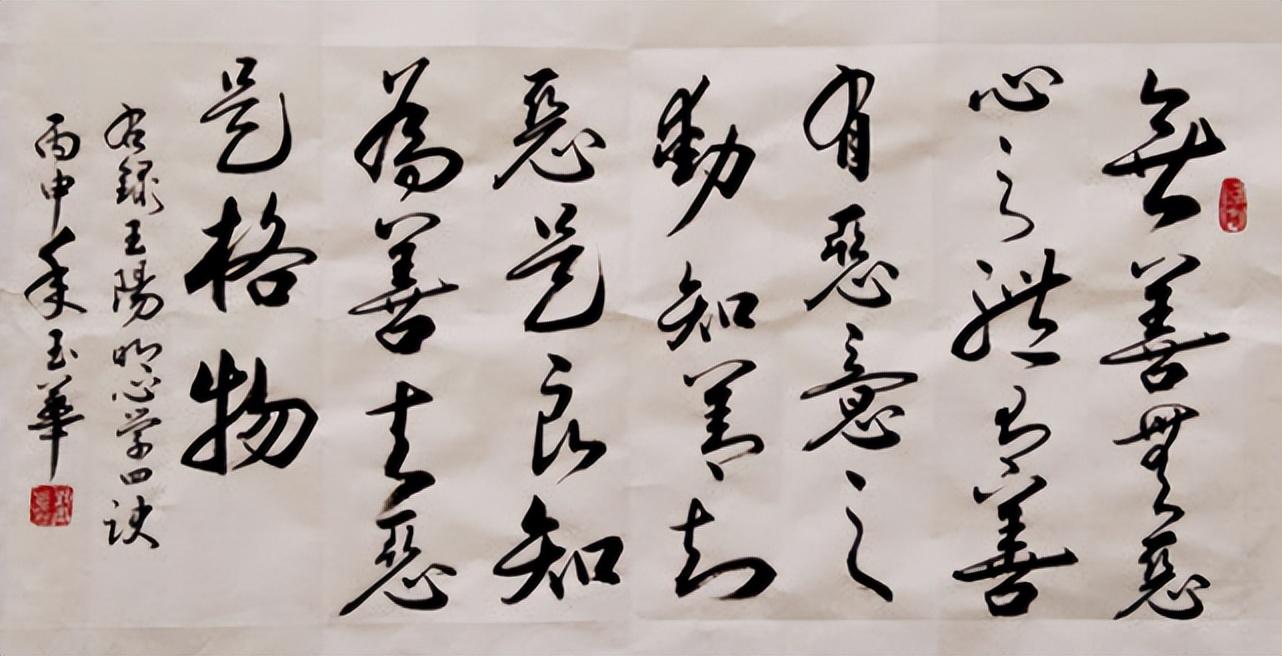 無善無惡
心之體有善
有惡意之
動知善知
惡是良知
為善去惡
是格物
右錄王陽明心学四訣
丙申年玉華